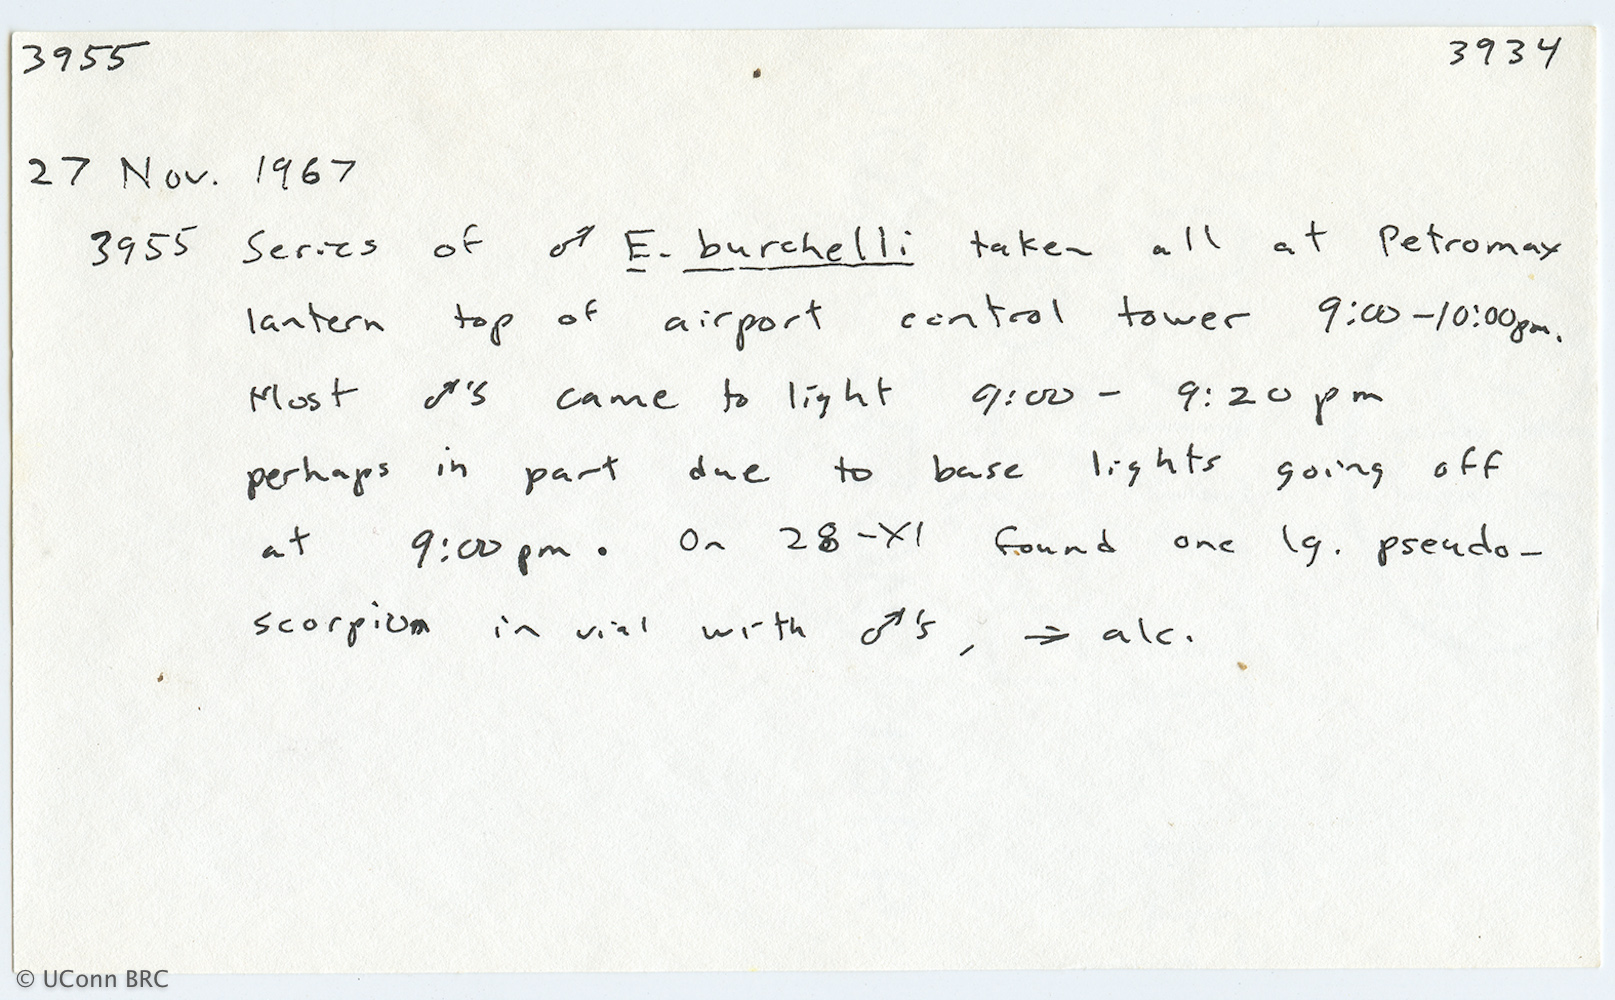 3955 3934
27 Nov. 1967
3955 Series of ♂ E. burchelli taken all at Petromax
lantern top of airport control tower 9:00-10:00pm.
Most ♂'s came to light 9:00 - 9:20 pm
perhaps in part due to base lights going off
at 9:00 pm. On 28-XI found one lg. pseudo-
scorpion in vial with ♂'s, ⇒ alc.
© UConn BRC